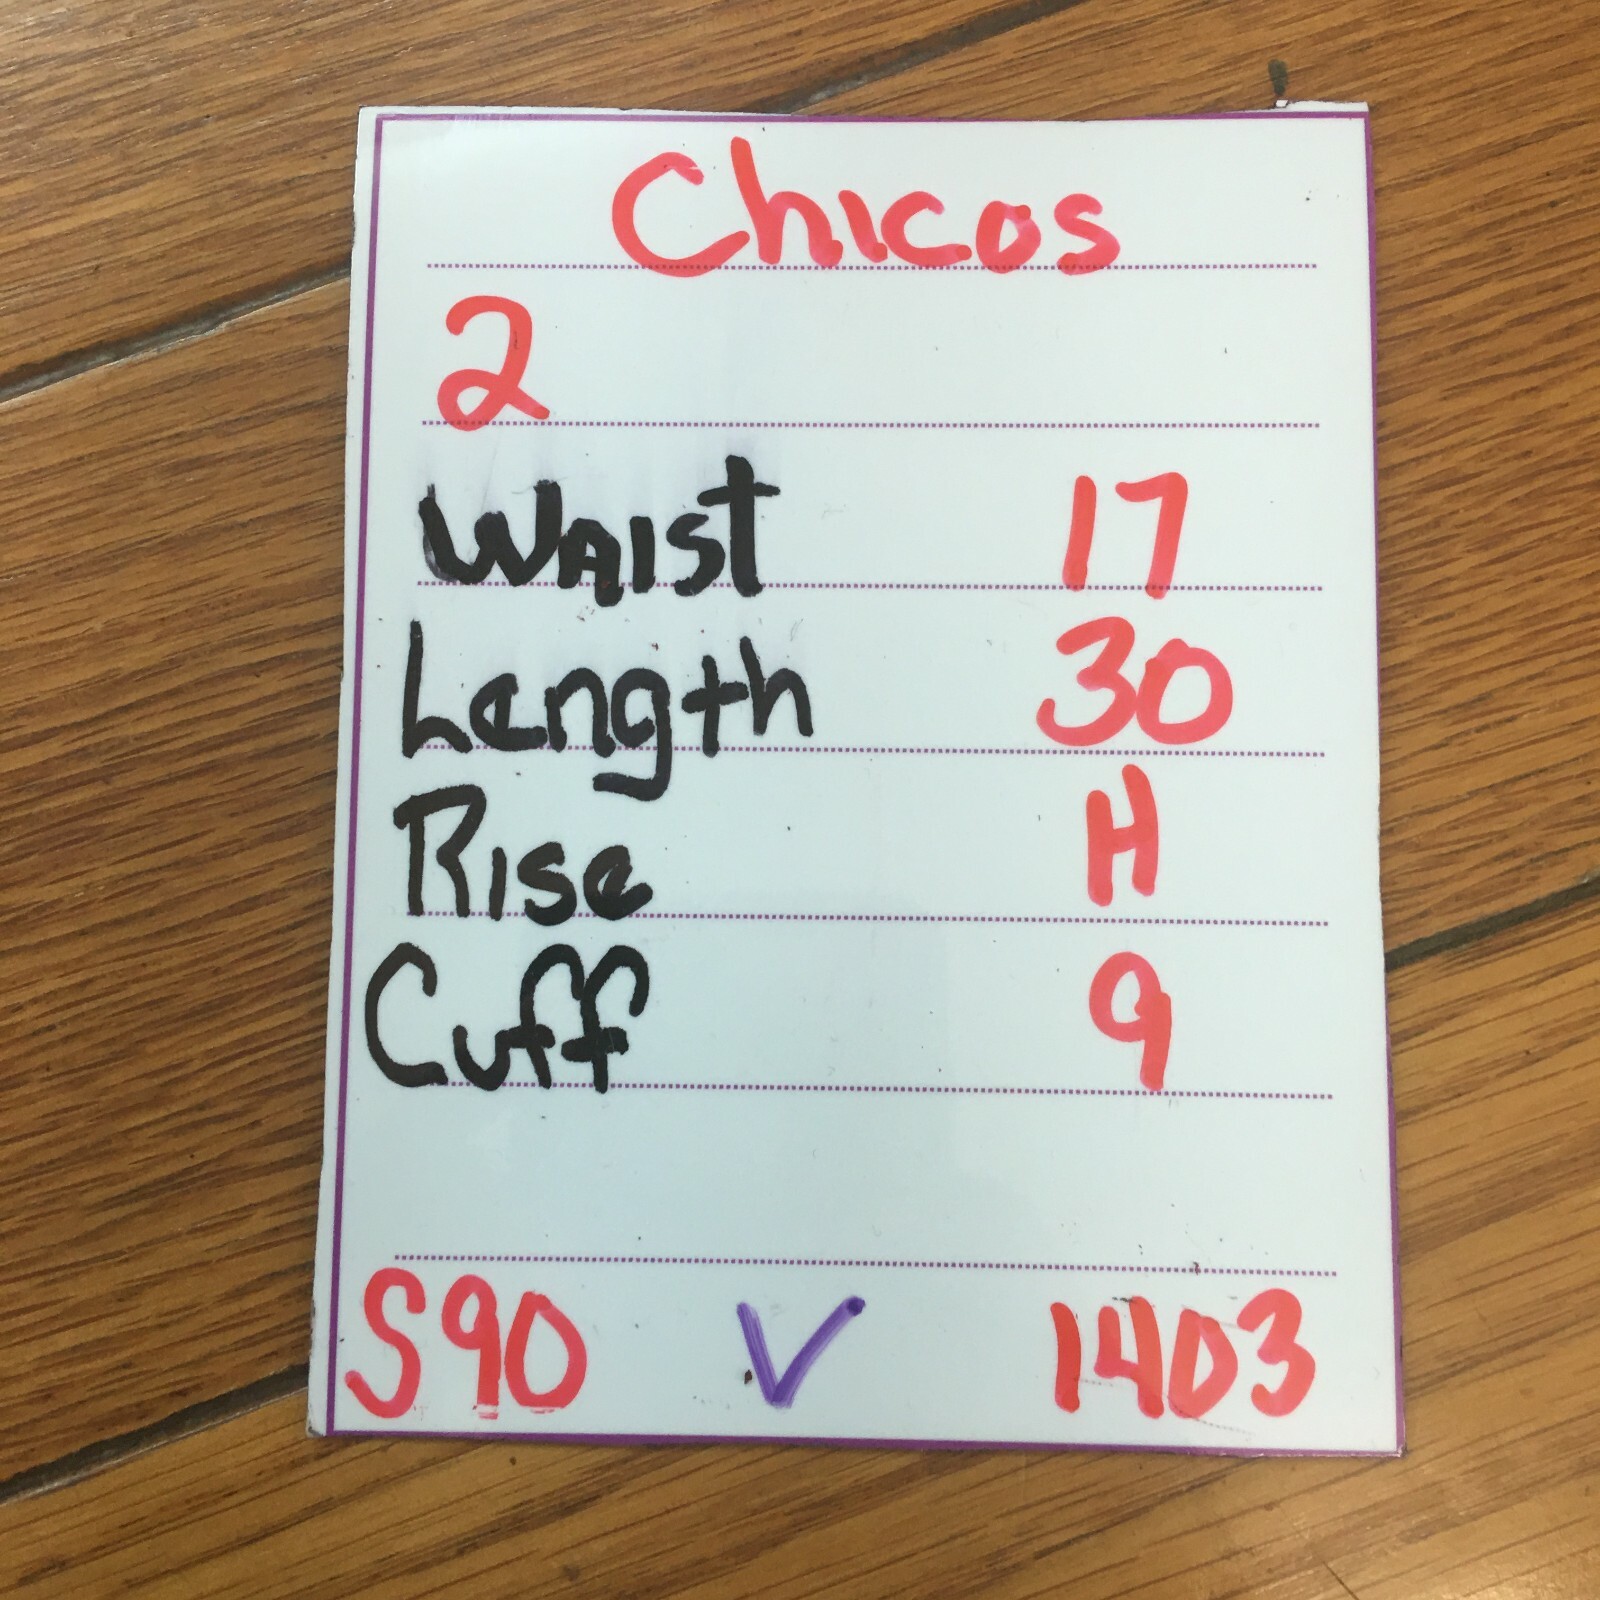 Chicos
2
Waist 17
Length 30
Rise H
Cuff 9
S90 V 1403